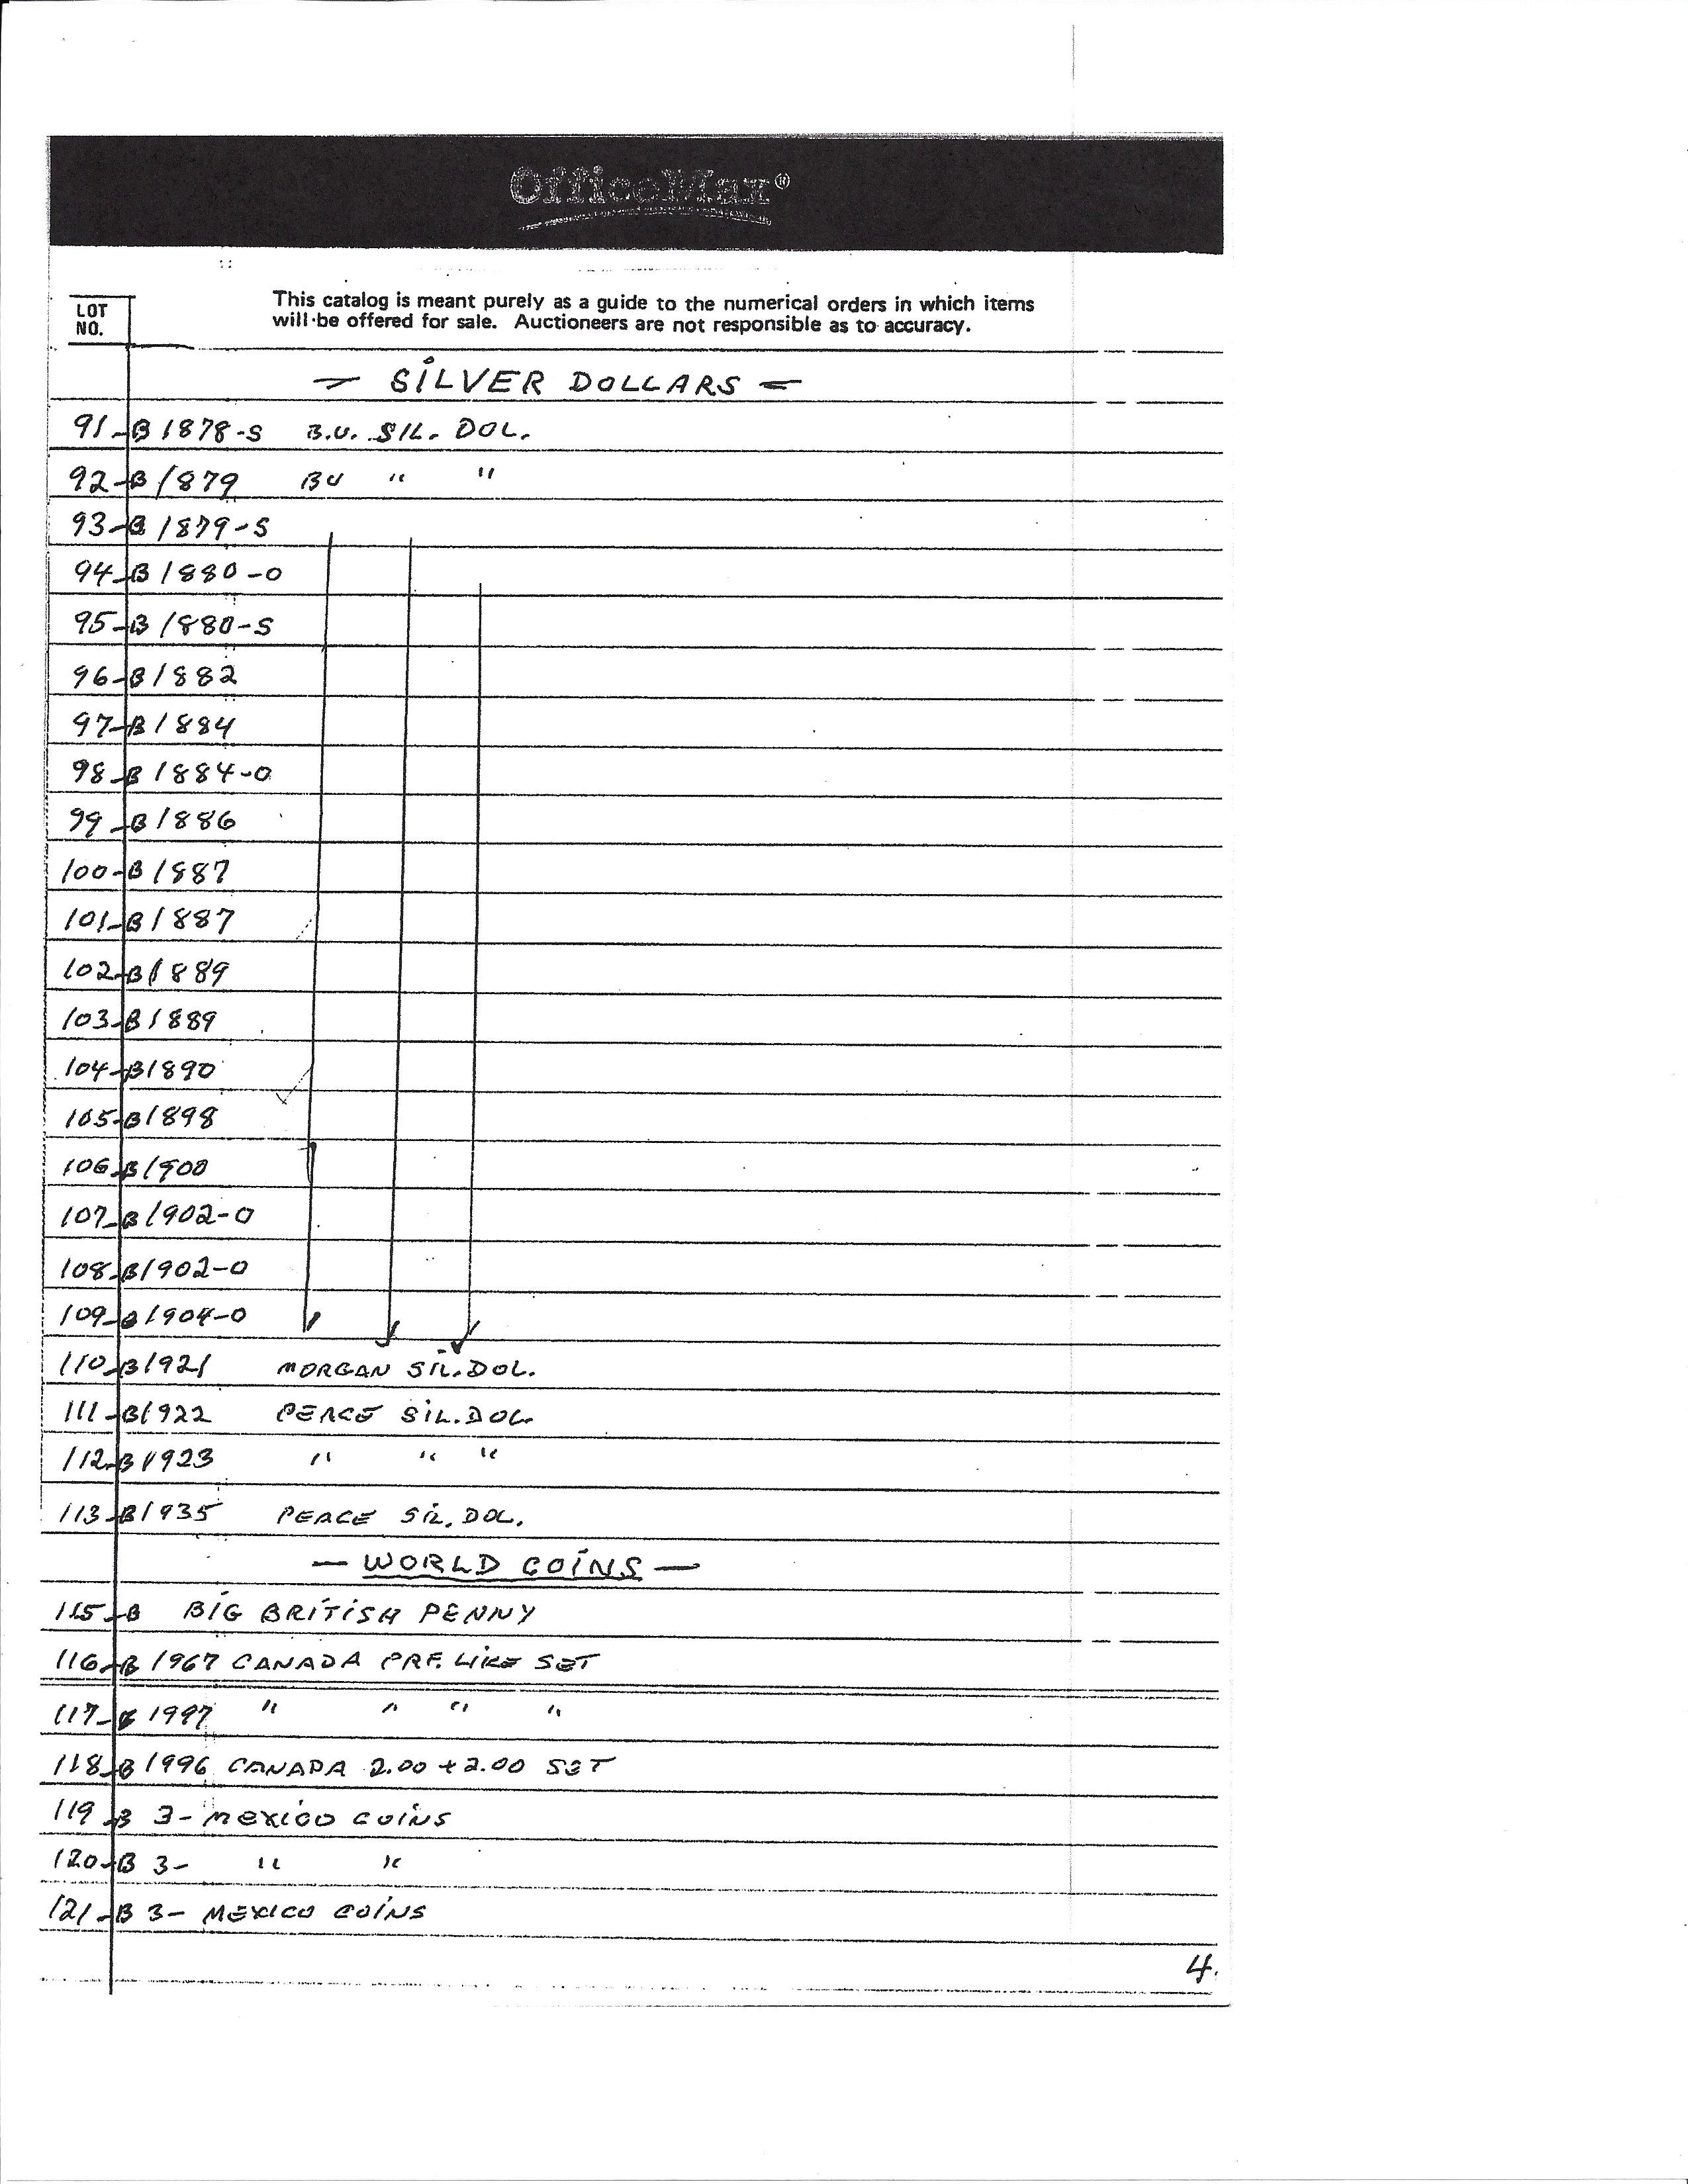 OfficeMax®
LOT NO.
This catalog is meant purely as a guide to the numerical orders in which items
will be offered for sale. Auctioneers are not responsible as to accuracy.
- SILVER DOLLARS -
91-B 1878-S B.U. SIL. DOL.
92-B 1879 BU " "
93-B 1879-S
94-B 1880-O
95-B 1880-S
96-B 1882
97-B 1884
98-B 1884-O
99-B 1886
100-B 1887
101-B 1887
102-B 1889
103-B 1889
104-B 1890
105-B 1898
106-B 1900
107-B 1902-O
108-B 1902-O
109-B 1904-O
110-B 1921 MORGAN SIL. DOL.
111-B 1922 PEACE SIL. DOL
112-B 1923 " " "
113-B 1935 PEACE SIL. DOL.
- WORLD COINS -
115-B BIG BRITISH PENNY
116-B 1967 CANADA PRF. LIKE SET
117-B 1997 " " " "
118-B 1996 CANADA 2.00 + 2.00 SET
119-B 3- MEXICO COINS
120-B 3- " "
121-B 3- MEXICO COINS
4.